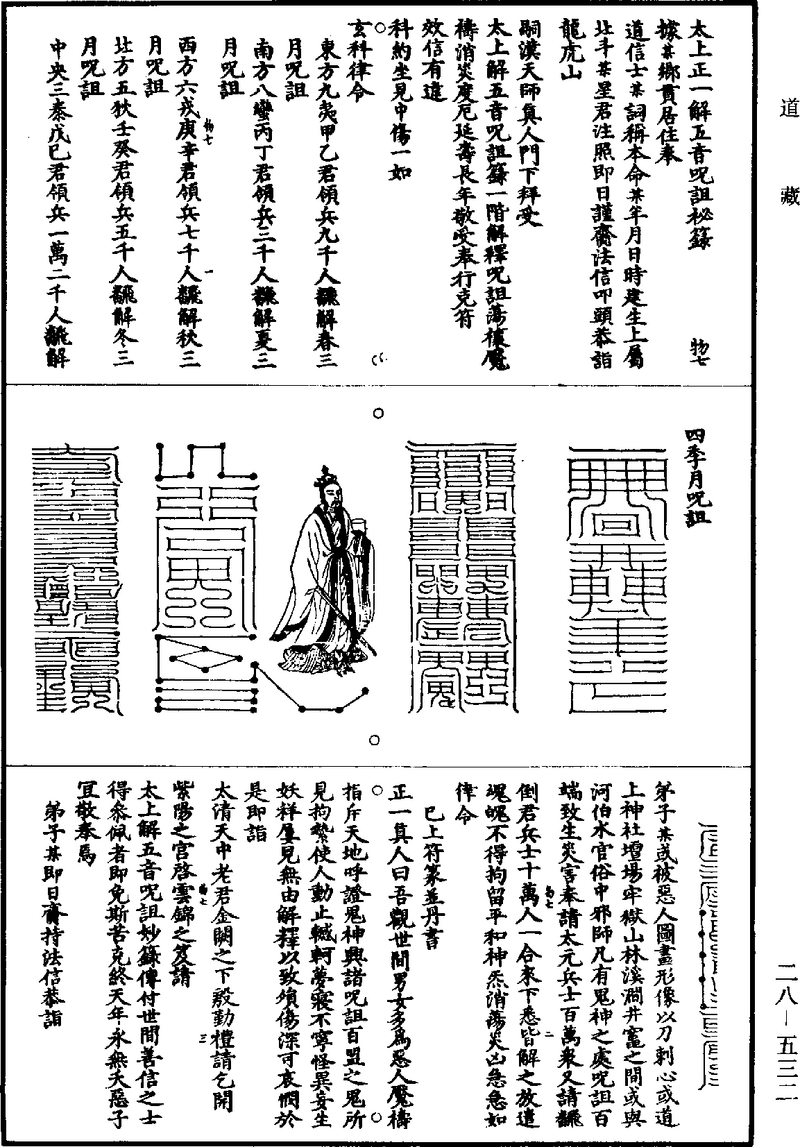 道藏
太上正一解五音呪詛秘籙 物七
據某鄉貫居住奉
道信士某詞稱本命某年月日時建生上屬
北斗某星君注照即日謹齎法信叩頭恭詣
龍虎山
嗣漢天師真人門下拜受
太上解五音呪詛籙一階解釋呪詛蕩穰魘
禱消災度厄延壽長年敬受奉行克符
效信有違
科約生見中傷一如
玄科律令
東方九夷甲乙君領兵九千人翻解春三
月呪詛
南方八蠻丙丁君領兵三千人翻解夏三
月呪詛
西方六戎庚辛君領兵七千人翻解秋三
月呪詛
北方五狄壬癸君領兵五千人翻解冬三
月呪詛
中央三秦戊巳君領兵一萬二千人翻解
四季月呪詛
弟子某或被惡人圖畫形像以刀刺心或道
上神社壇場牢獄山林溪澗井竈之間或與
河伯水官俗中邪師凡有鬼神之處呪詛百
端致生災害奉請太元兵士百萬衆又請翻
倒君兵士十萬人一合來下悉皆解之放遣
魂魄不得拘留平和神炁消蕩災凶急急如
律令
已上符篆並丹書
正一真人曰吾觀世間男女多爲惡人魘禱
指斥天地呼證鬼神興諸呪詛百盟之鬼所
見拘縶使人動止轗軻夢寢不寧怪異妄生
妖祥屢見無由解釋以致殞傷深可哀憫於
是即詣
太清天中老君金闕之下殷勤禮請乞開
紫陽之宮啓雲錦之笈請
太上解五音呪詛妙籙傳付世間善信之士
得叅佩者即免斯苦克終天年永無夭惡子
宜敬奉焉
弟子某即日齎持法信恭詣
二八－五三二